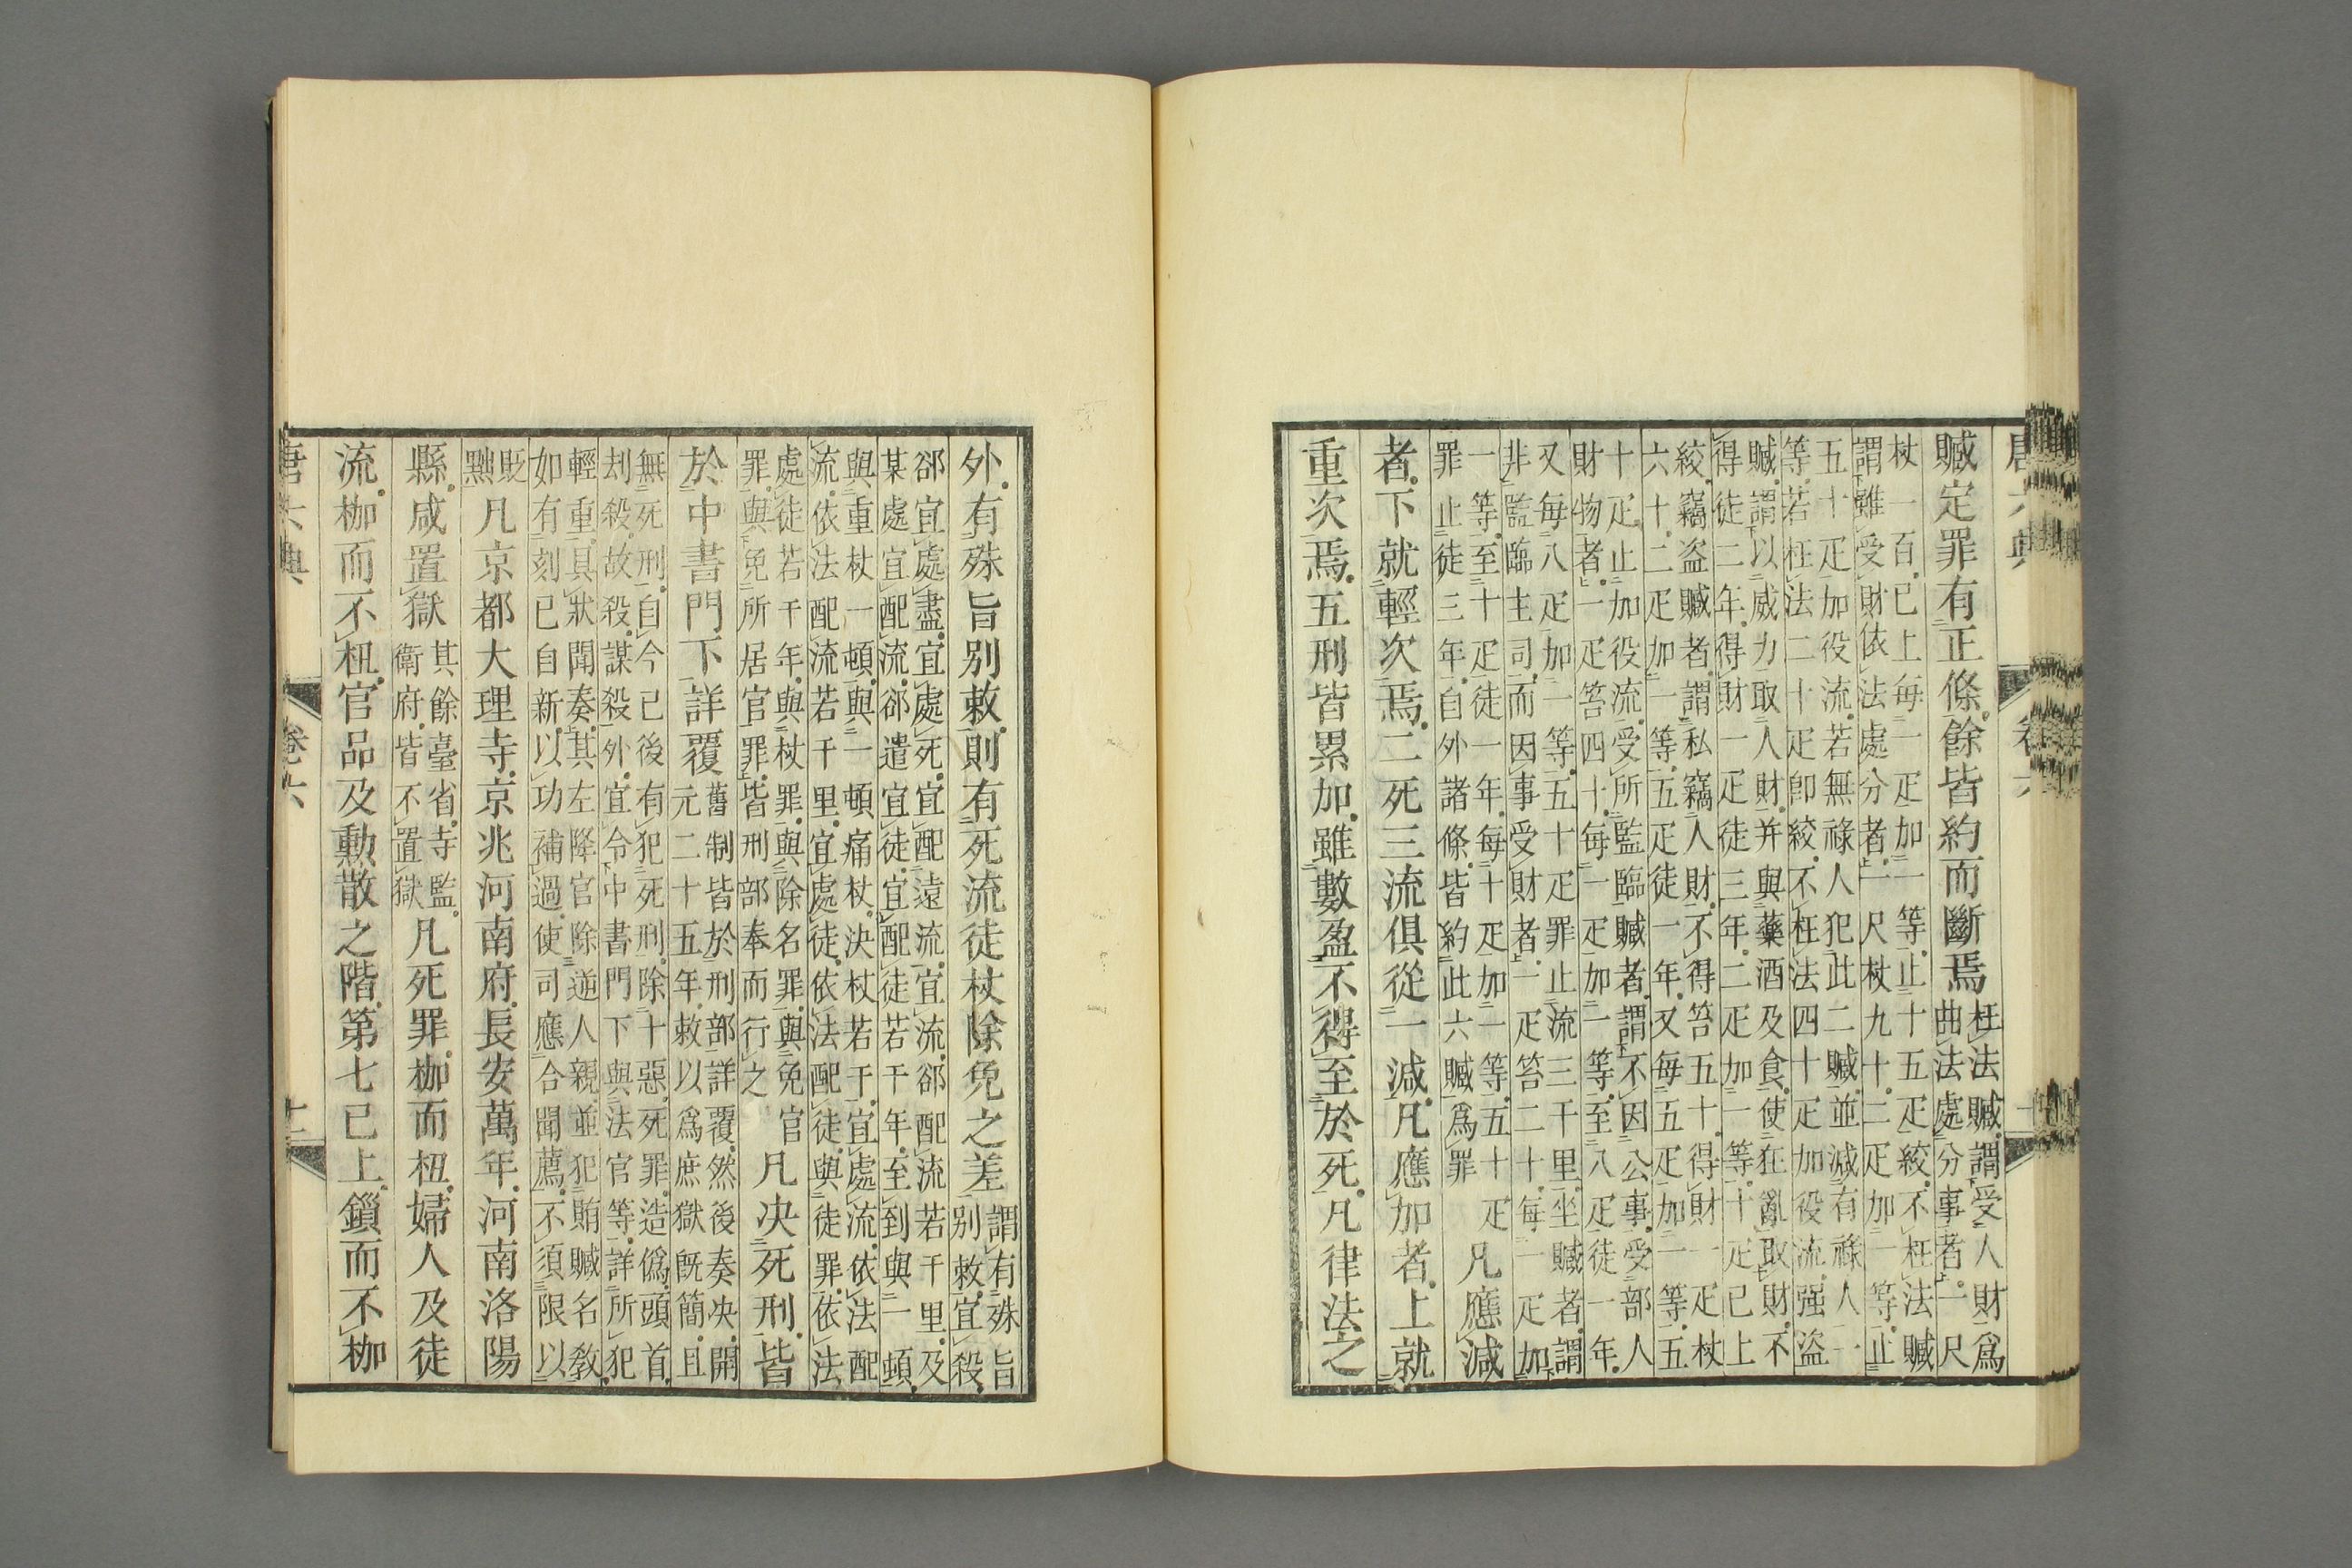 贓定罪有正條餘皆約而斷焉枉法贓謂受人財爲
曲法處分事者一尺
杖一百已上每一疋加一等止十五疋絞不枉法贓
謂雖受財依法處分者一尺杖九十二疋加一等止
五十疋加役流若無祿人犯此二贓並減有祿人一
等若枉法二十疋卽絞不枉法四十疋加役流强盜
贓謂以威力取人財并與藥酒及食使狂亂取財不
得徒二年得財一疋徒三年二疋加一等十疋已上
絞竊盜贓者謂私竊人財不得笞五十得財一疋杖
六十二疋加一等五疋徒一年又每五疋加一等五
十疋止加役流受所監臨贓者謂不因公事受部人
財物者一疋笞四十每一疋加一等至八疋徒一年
又每八疋加一等五十疋罪止流三千里坐贓者謂
非監臨主司而因事受財者一疋笞二十每一疋加
一等至十疋徒一年每十疋加一等五十疋
罪止徒三年自外諸條皆約此六贓爲罪
凡應減
者下就輕次焉二死三流俱從一減凡應加者上就
重次焉五刑皆累加雖數盈不得至於死凡律法之
外有殊旨別敕則有死流徒杖除免之差謂有殊旨
別敕宜殺
郤宜處盡宜處死宜配遠流宜流郤配流若干里及
某處宜配流郤遣宜徒宜配徒若干年至到與一頓
與重杖一頓與一頓痛杖決杖若干宜處流依法配
流依法配流若干里宜處徒依法配徒與徒罪依法
處徒若干年與杖罪與除名罪與免官
罪與免所居官罪皆刑部奉而行之
凡决死刑皆
於中書門下詳覆舊制皆於刑部詳覆然後奏决開
元二十五年敕以爲庶獄旣簡且
無死刑自今已後有犯死刑除十惡死罪造僞頭首
刦殺故殺謀殺外宜令中書門下與法官等詳所犯
輕重具狀聞奏其左降官除逆人親並犯賄贓名敎
如有刻已自新以功補過使司應合聞薦不須限以
貶
黜
凡京都大理寺京兆河南府長安萬年河南洛陽
縣咸置獄其餘臺省寺監
衛府皆不置獄
凡死罪枷而杻婦人及徒
流枷而不杻官品及勳散之階第七已上鎖而不枷
唐六典
卷六
十一